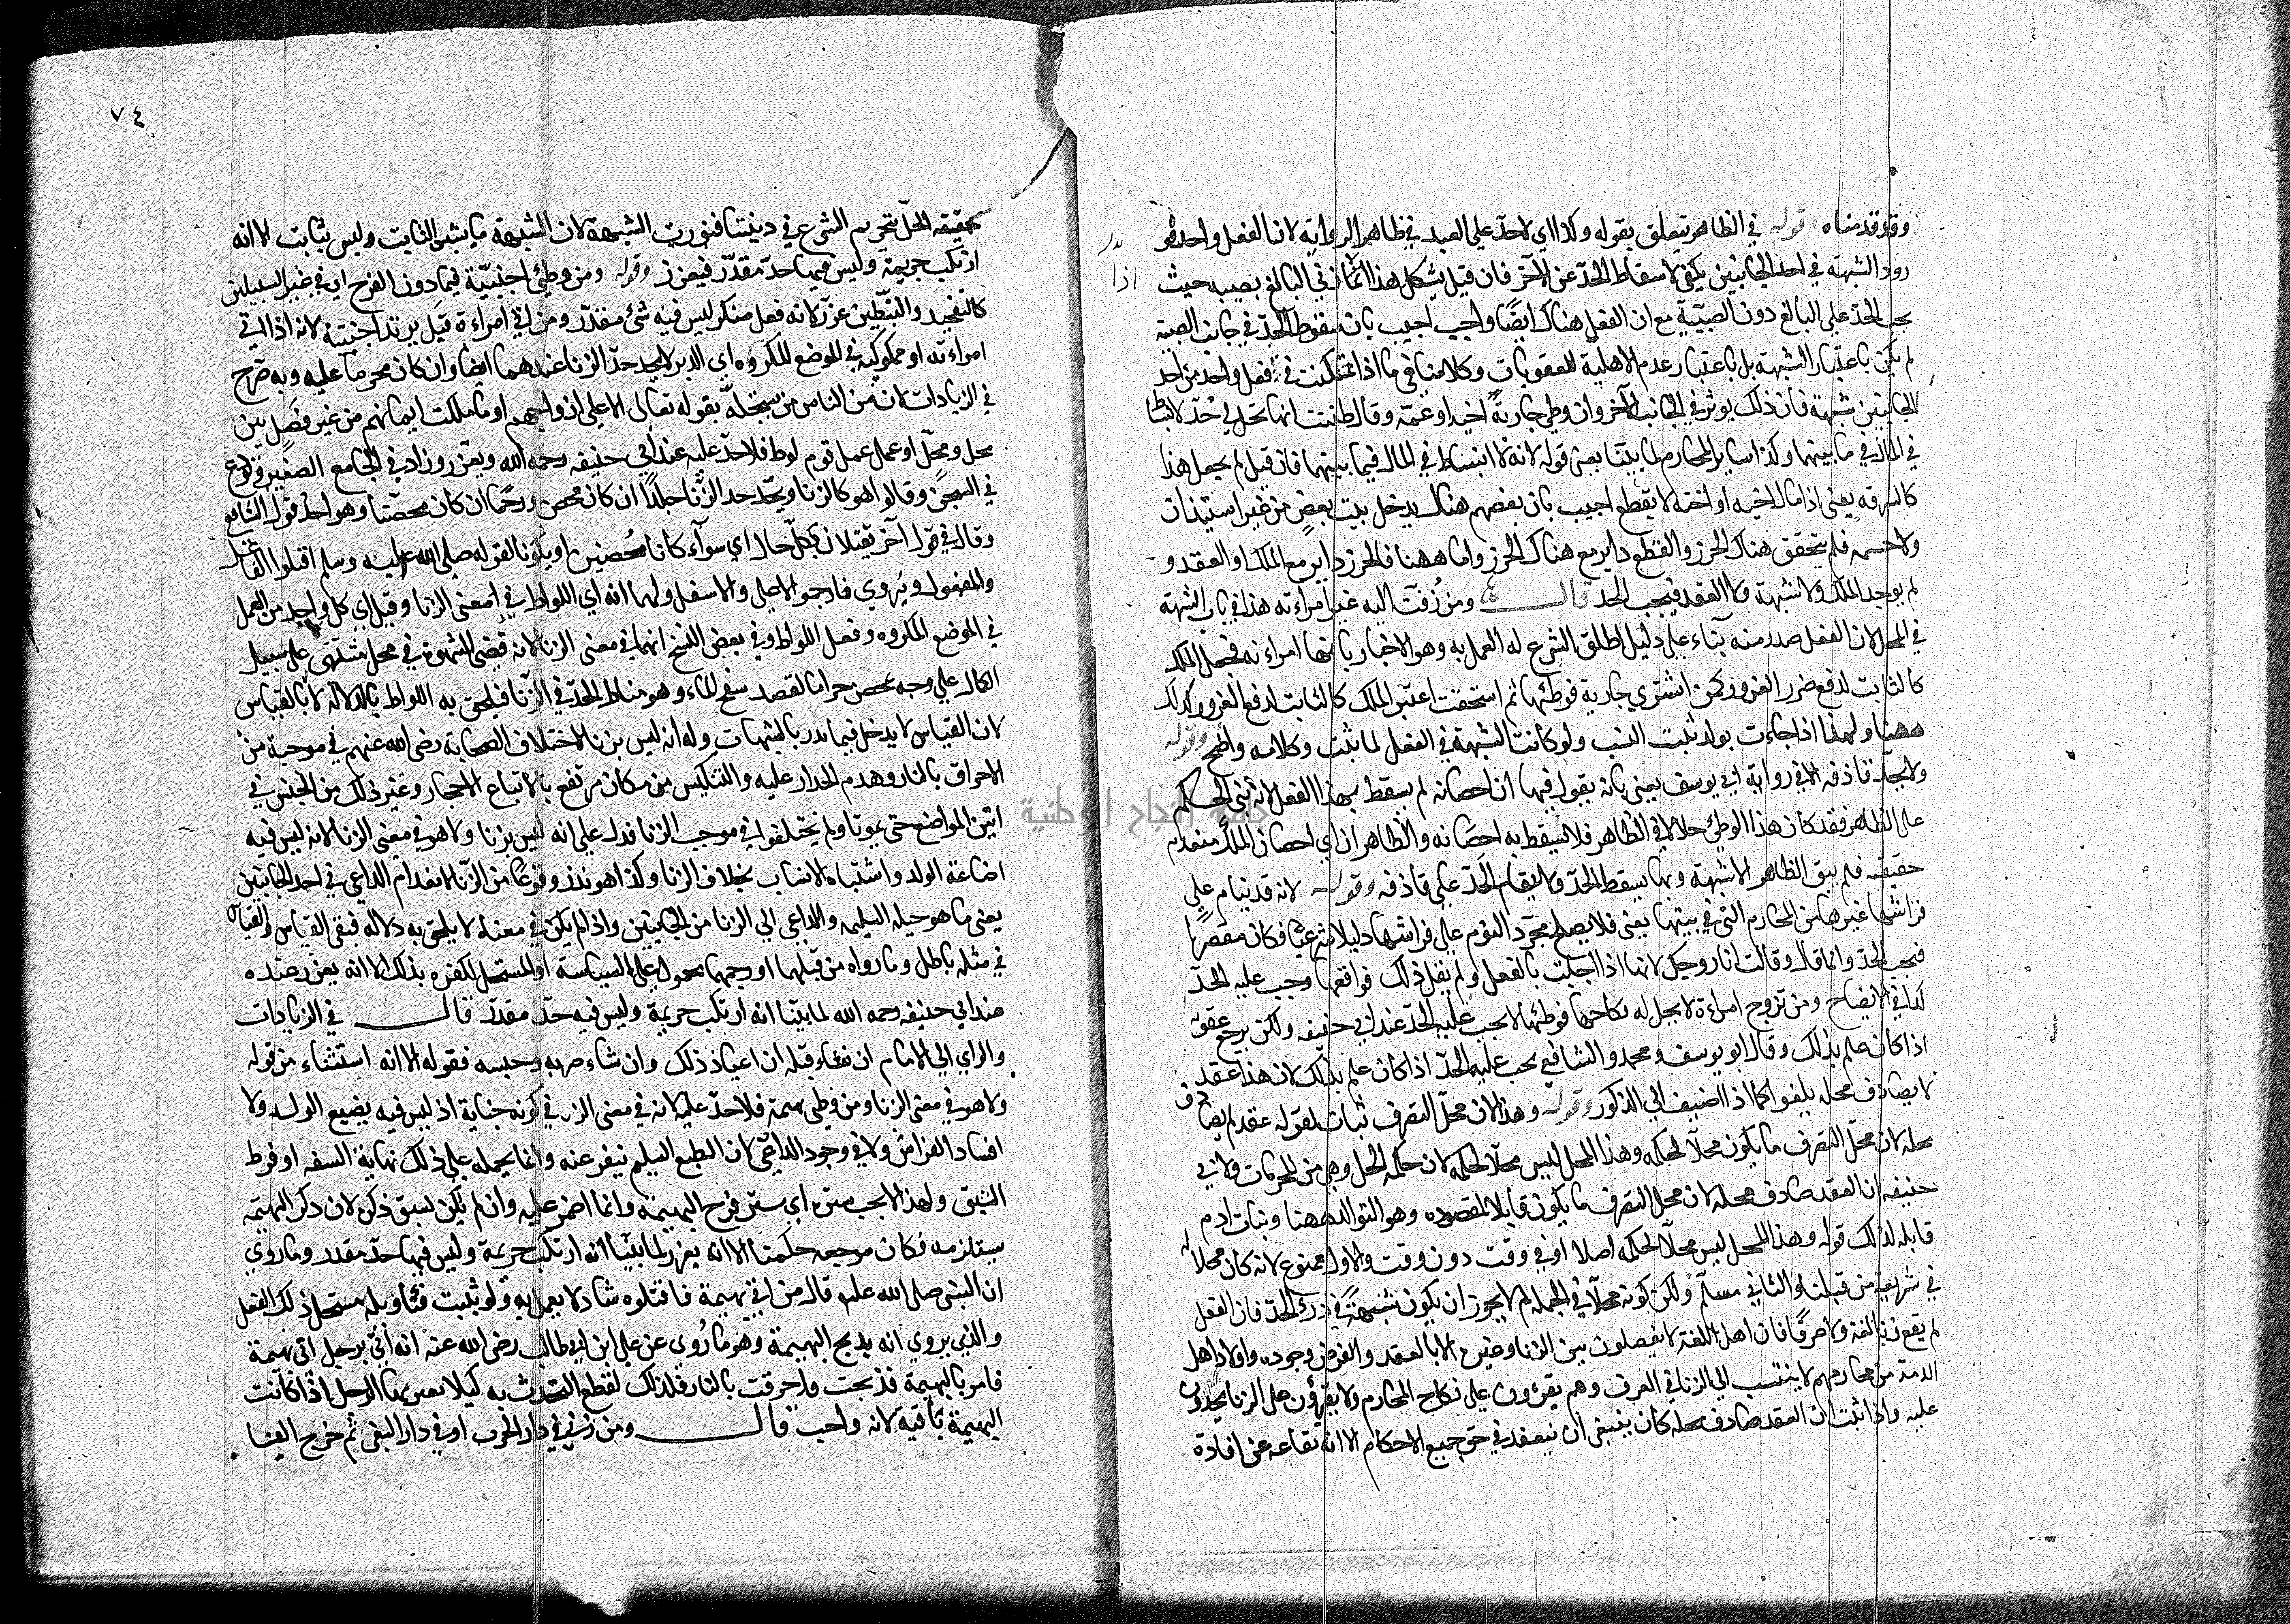 وقد قدمناه وقوله في الظاهر يتعلق بقوله وكذا اي لاحد على العبد في ظاهر الرواية لان الفعل واحد فو
رود الشبهة في احد الجانبين يكفي لاسقاط الحد عن الآخر فان قيل يشكل هذا اذا زنى البالغ بصبيه حيث
يجب الحد على البالغ دون الصبية مع ان الفعل هناك ايضا واحد اجيب بان سقوط الحد في جانب الصبية
لم يكن باعتبار الشبهة بل باعتبار عدم الاهلية للعقوبات وكلامنا في ما اذا تمكنت في فعل واحد من احد
الجانبين شبهة فان ذلك يوثر في الجانب الآخر وان وطي جارية اخيه او عمه وقال ظننت انها تحل لي حد لانبساط
في المال في ما بينهما وكذا ساير المحارم لما بينا يعني قوله لانه لا انبساط في المال فيما بينهما فان قيل لم يجعل هذا
كالسرقه يعني اذا مال اخيه او اخته لا يقطع اجيب بان بعضهم هناك يدخل بيت بعض من غير استيذان
ولا حسمه فلم يتحقق هناك الحرز والقطع داير مع هناك الحرز واما ههنا فالحرز داير مع الملك او العقد و
لم يوجد الملك ولا شبهة ولا العقد فيجب الحد قال ومن زفت اليه غير امراءته هذا في بيان الشبهة
في المحل لان الفعل صدر منه بناء على دليل اطلق الشرع له العمل به وهو الاخبار بانها امراءته فجعل الملك
كالثابت لدفع ضرر الغرور كمن اشتري جارية فوطئها ثم استحقت اعتبر الملك كالثابت لدفع الغرور كذلك
ههنا ولهذا اذا جاءت بولد ثبت النسب ولو كانت الشبهة في الفعل لما ثبت وكلامه واضح وقوله
ولا يحد قاذفه الا في رواية ابي يوسف يعني بانه يقول فيها ان احصانه لم يسقط بهذا الفعل لانه بنى الحكم
على الظاهر فقد كان هذا الوطئ حلالا في الظاهر فلا يسقط به احصانه والظاهر ان اي احصان الملك منعدم
حقيقه فلم يبق الظاهر الا شبهة وبها يسقط الحد ولا يقام الحد على قاذفه وقوله لانه قد ينام على
فراشها غيرها من المحارم التي في بيتها يعني فلا يصلح مجرد النوم على فراشها دليلا شرعيا فكان مقصرا
فيجب الحد وانما قال وقالت انا زوجك لانها اذا اجابت بالفعل ولم يقل ذلك فواقعها وجب عليه الحد
كذا في الايضاح ومن تزوج امراءة لا يحل له نكاحها فوطئها لا يجب عليه الحد عند ابي حنيفه ولكن يوجع عقوبة
اذا كان علم بذلك وقال ابو يوسف ومحمد والشافعي يجب عليه الحد اذا كان علم بذلك لان هذا عقد
لا يصادف محله يلغوا كما اذا اضيف الى الذكور وقوله وهذا لان محل التصرف بيان لقوله عقد لم يصادف
محله لان محل التصرف ما يكون محلا لحكمه وهذا المحل ليس محلا لحكمه لان حكمه الحل وهي من المحرمات ولابي
حنيفه ان العقد صادف محله لان محل التصرف ما يكون قابلا لمقصوده وهو التوالد ههنا وبنات ادم
قابله لذلك قوله وهذا المحل ليس محلا لحكمه اصلا او في وقت دون وقت والاول ممنوع لانه كان محلا له
في شريعة من قبلنا والثاني مسلم ولكن كونه محلا في الجمله لم لا يجوز ان يكون شبهة في درئ الحد فان الفعل
لم يقع زنا لغة ولا عرفا فان اهل اللغة لا يفصلون بين الزنا وغيره الا بالعقد والفرض وجوده واولاد اهل
الذمة من محارمهم لا ينتسب الى الزنا في العرف وهم يقرءون على نكاح المحارم ولا يقرءون على الزنا يحدون
عليه واذا ثبت ان العقد صادف محله كان ينبغي ان ينعقد في حق جميع الاحكام الا انه تقاعد عن افادة
٧٤
حقيقه الحل بتحريم الشرع في ديننا فيورث الشبهة لان الشبهة ما يشبه الثابت وليس بثابت الا انه
ارتكب جريمة وليس فيها حد مقدر فيعزر وقوله ومن وطئ اجنبية فيما دون الفرج اي في غير السبيلين
كالتفخيذ والتبطين عزر لانه فعل منكر ليس فيه شئ مقدر ومن اتى امراءة قيل يريد اجنبية لانه اذا اتى
امراءته او مملوكته في الموضع المكروه اي الدبر لا يحد حد الزنا عندهما ايضا وان كان محرما عليه وبه صرح
في الزيادات لان من الناس من يستحله بقوله تعالى الا على ازواجهم او ما ملكت ايمانهم من غير فصل بين
محل ومحل او عمل عمل قوم لوط فلا حد عليه عند ابي حنيفه رحمه الله ويعزر وزاد في الجامع الصغير فيودع
في السجن وقالوا هو كالزنا ويحد حد الزنا جلدا ان كان محصن ورجما ان كان محصنا وهو احد قول الشافعي
وقال في قول آخر يقتلان بكل حال اي سواء كانا محصنين او يكونا لقوله صلى الله عليه وسلم اقتلوا الفاعل
والمفعول ويروي فارجموا الاعلى والاسفل ولهما انه اي اللواط في معنى الزنا وقيل اي كل واحد من العمل
في الموضع المكروه وفعل اللواط وفي بعض النسخ انهما في معنى الزنا لانه قضى الشهوة في محل مشتهى على سبيل
الكمال على وجه تمحض حراما لقصد سفح الماء وهو مناط الحد في الزنا فيلحق به اللواط بالدلالة لا بالقياس
لان القياس لا يدخل فيما يدرء بالشبهات وله انه ليس بزنا لاختلاف الصحابة رضي الله عنهم في موجبه من
الاحراق بالنار وهدم الجدار عليه والتنكيس من مكان مرتفع باتباع الاحجار وغير ذلك من الحبس في
انتن المواضع حتى يموتا ولم يختلفوا في موجب الزنا فدل على انه ليس بزنا ولا هو في معنى الزنا لانه ليس فيه
اضاعة الولد واشتباه الانساب بخلاف الزنا وكذا هو اندر وقوعا من الزنا لانعدام الداعي في احد الجانبين
يعني ما هو جبله السليمه والداعي الى الزنا من الجانبين واذا لم يكن في معناه لا يلحق به دلاله فبقى القياس والقياس
في مثله باطل وما رواه من قتلهما او رجمهما محمول على السياسة او المستحل لكفره بذلك الا انه يعزر عنده
عند ابي حنيفه رحمه الله لما بينا انه ارتكب جريمة وليس فيه حد مقدر قال في الزيادات
والراي الى الامام ان شاء قتله ان اعتاد ذلك وان شاء ضربه وحبسه فقوله الا انه استثناء من قوله
ولا هو في معنى الزنا ومن وطى بهيمة فلا حد عليه لانه في معنى الزنا في كونه جناية اذ ليس فيه يضيع الولد ولا
افساد الفراش ولا في وجود الداعي لان الطبع السليم ينفر عنه وانما يحمله على ذلك نهاية السفه او فرط
الشبق ولهذا لا يجب ستره اي ستر فرج البهيمة وانما اضمر عليه وان لم يكن يسبق ذكره لان ذكر البهيمه
يستلزمه فكان مرجعه حكمنا الا انه يعزر لما بينا انه ارتكب جريمة وليس فيها حد مقدر وما روي
ان النبي صلى الله عليه قال من اتى بهيمة فاقتلوه شاذ لا يعمل به ولو ثبت فتأويله مستحل ذلك الفعل
والذي يروي انه يذبح البهيمة وهو ما روى عن علي ابن ابي طالب رضي الله عنه انه اتي برجل اتى بهيمة
فامر بالبهيمة فذبحت واحرقت بالنار فلذلك لقطع التحدث به كيلا يعير بها الرجل اذا كانت
البهيمة باقية لا انه واجب قال ومن زنى في دار الحرب او في دار البغي ثم خرج الينا